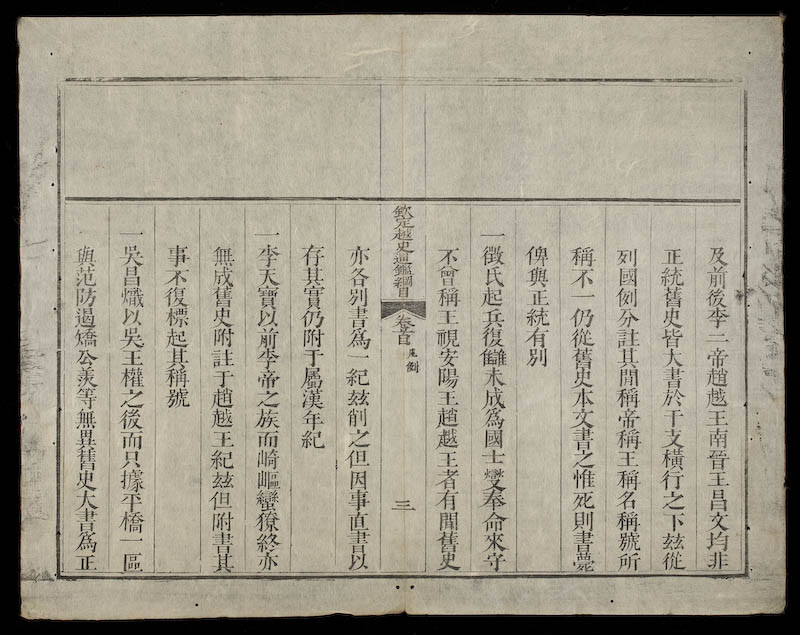 及前後李二帝趙越王南晉王昌文均非
正統舊史皆大書於干支橫行之下茲從
列國例分註其間稱帝稱王稱名稱號所
稱不一仍從舊史本文書之惟死則書薨
俾與正統有別
一徵氏起兵復讎未成爲國士燮奉命來守
不曾稱王視安陽王趙越王者有間舊史
欽定越史通鑑綱目
卷首
凡例
三
亦各別書爲一紀茲削之但因事直書以
存其實仍附于屬漢年紀
一李天寶以前李帝之族而崎嶇蠻獠終亦
無成舊史附註于趙越王紀茲但附書其
事不復標起其稱號
一吳昌熾以吳王權之後而只據平橋一區
與范防遏矯公羨等無異舊史大書爲正